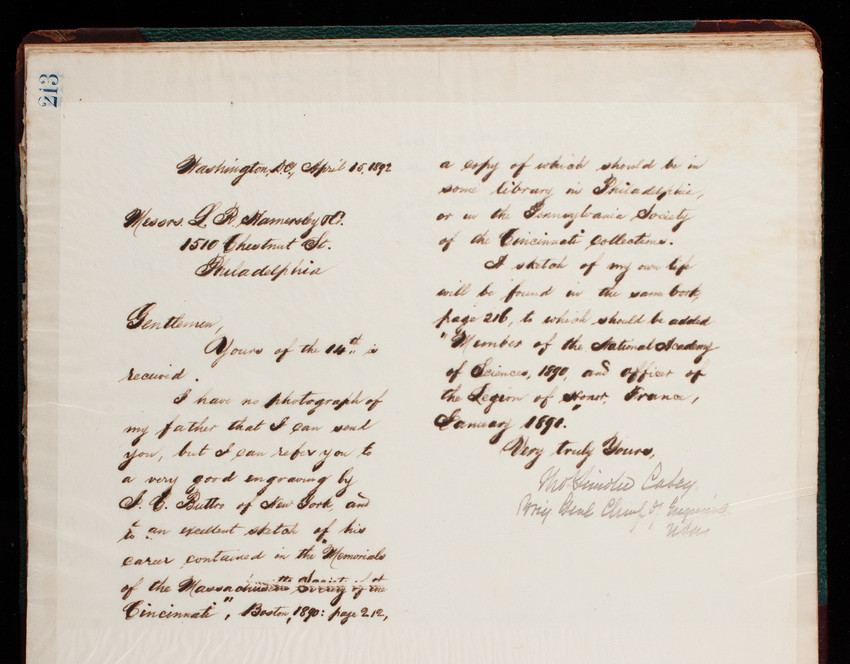 213
Washington, D.C., April 15, 1892
Messrs. L. R. Hamersly & Co.
1510 Chestnut St.
Philadelphia
Gentlemen,
Yours of the 14th is
received.
I have no photograph of
my father that I can send
you, but I can refer you to
a very good engraving by
J. C. Buttre of New York, and
to an excellent sketch of his
career contained in the "Memorials
of the Massachusetts Society of the
Cincinnati", Boston, 1890: page 212,
a copy of which should be in
some library in Philadelphia,
or in the Pennsylvania Society
of the Cincinnati collections.
A sketch of my own life
will be found in the same book,
page 216, to which should be added
"Member of the National Academy
of Sciences, 1890, and officer of
the Legion of Honor, France,
January 1891."
Very truly Yours,
Thos Lincoln Casey
Brig Genl Chief of Engineers